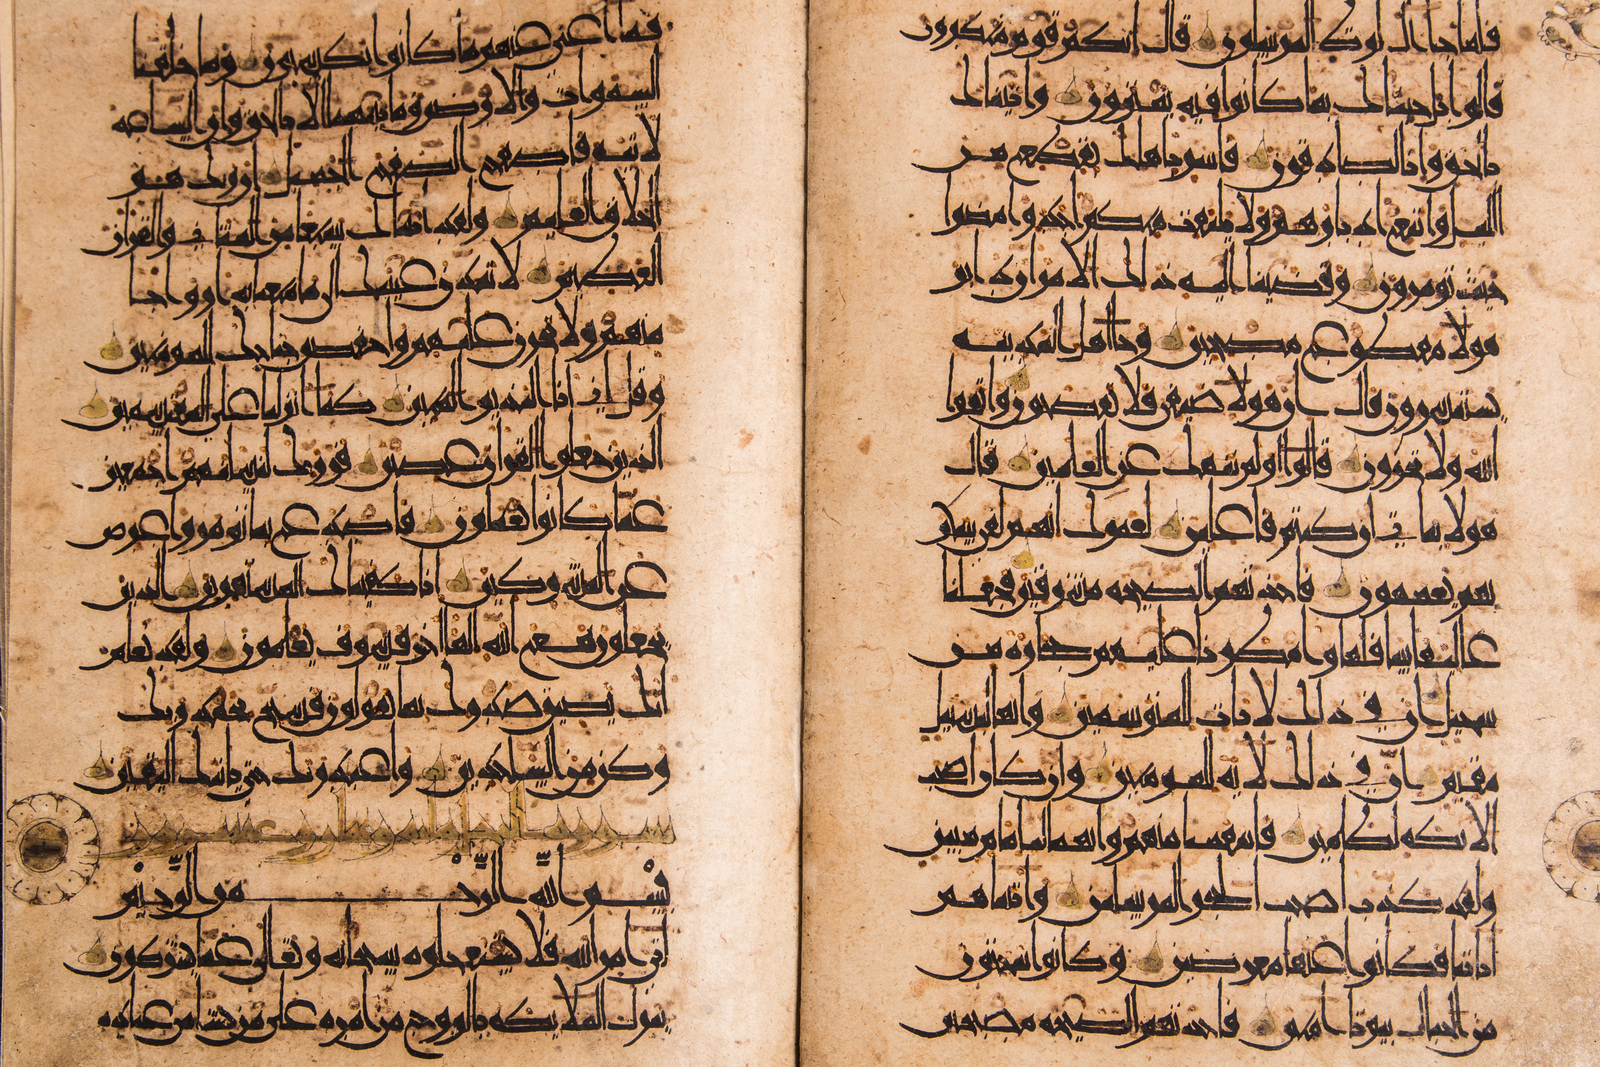 فلما جا ال لوط المرسلون قال انكم قوم منكرون
قالوا بل جيناك بما كانوا فيه يمترون واتيناك
بالحق وانا لصادقون فاسر باهلك بقطع من
اليل واتبع ادبارهم ولا يلتفت منكم احد وامضوا
حيث تومرون وقضينا اليه ذلك الامر ان دابر
هولا مقطوع مصبحين وجا اهل المدينه
يستبشرون قال ان هولا ضيفي فلا تفضحون واتقوا
الله ولا تخزون قالوا اولم ننهك عن العالمين قال
هولا بناتي ان كنتم فاعلين لعمرك انهم لفي سكر
تهم يعمهون فاخذتهم الصيحه مشرقين فجعلنا
عاليها سافلها وامطرنا عليهم حجاره من
سجيل ان في ذلك لايات للمتوسمين وانها لبسبيل
مقيم ان في ذلك لايه للمومنين وان كان اصحب
الايكه لظالمين فانتقمنا منهم وانهما لبامام مبين
ولقد كذب اصحب الحجر المرسلين واتيناهم
اياتنا فكانوا عنها معرضين وكانوا ينحتون
من الجبال بيوتا امنين فاخذتهم الصيحه مصبحين
فما اغنى عنهم ما كانوا يكسبون وما خلقنا
السموات والارض وما بينهما الا بالحق وان الساعه
لاتيه فاصفح الصفح الجميل ان ربك هو
الخلاق العليم ولقد اتيناك سبعا من المثاني والقران
العظيم لا تمدن عينيك الى ما متعنا به ازواجا
منهم ولا تحزن عليهم واخفض جناحك للمومنين
وقل اني انا النذير المبين كما انزلنا على المقتسمين
الذين جعلوا القران عضين فوربك لنسالنهم اجمعين
عما كانوا يعملون فاصدع بما تومر واعرض
عن المشركين انا كفيناك المستهزين الذين
يجعلون مع الله الها اخر فسوف يعلمون ولقد نعلم
انك يضيق صدرك بما يقولون فسبح بحمد ربك
وكن من الساجدين واعبد ربك حتى ياتيك اليقين
بسم الله الرحمن الرحيم
اتى امر الله فلا تستعجلوه سبحانه وتعالى عما يشركون
ينزل الملايكه بالروح من امره على من يشا من عباده